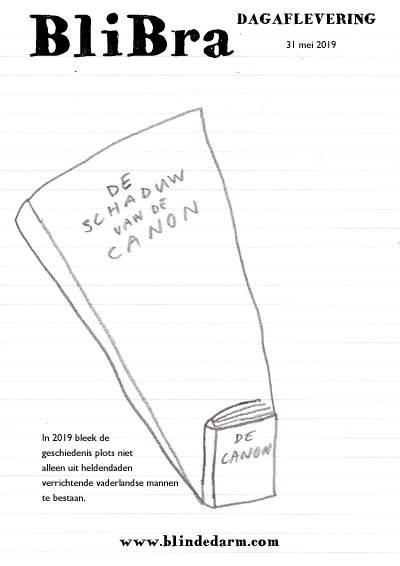 BliBra
DAGAFLEVERING
31 mei 2019
DE
SCHADUW
VAN DE
CANON
DE
CANON
In 2019 bleek de
geschiedenis plots niet
alleen uit heldendaden
verrichtende vaderlandse mannen
te bestaan.
www.blindedarm.com